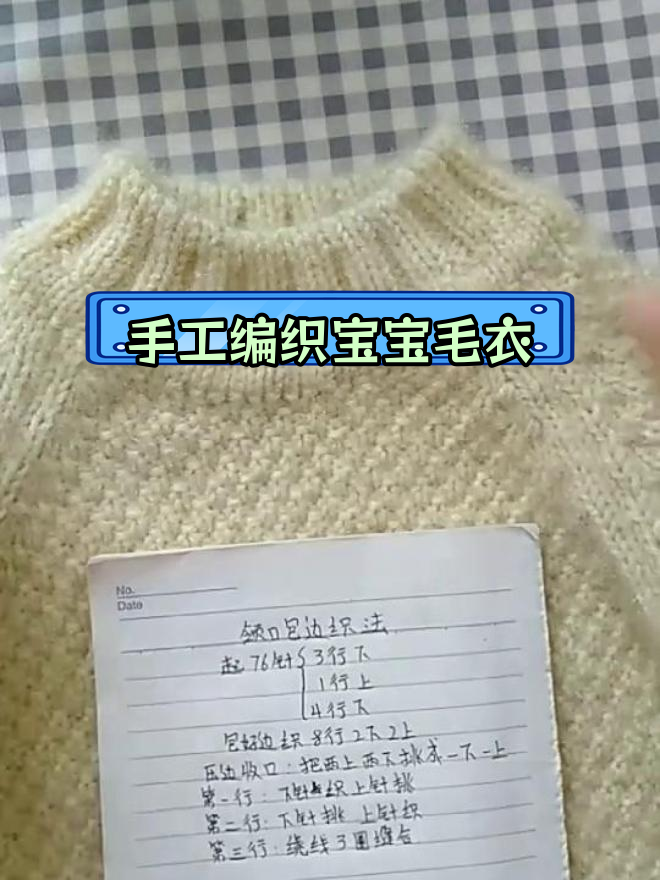 手工编织宝宝毛衣
No.
Date
领口包边织法
起76针{3行下
1行上
4行下
包好边织8行2下2上
压边收口:把两上两下挑成一下一上
第一行:下针织上针挑
第二行:下针挑 上针织
第三行:绕线3圈缝合